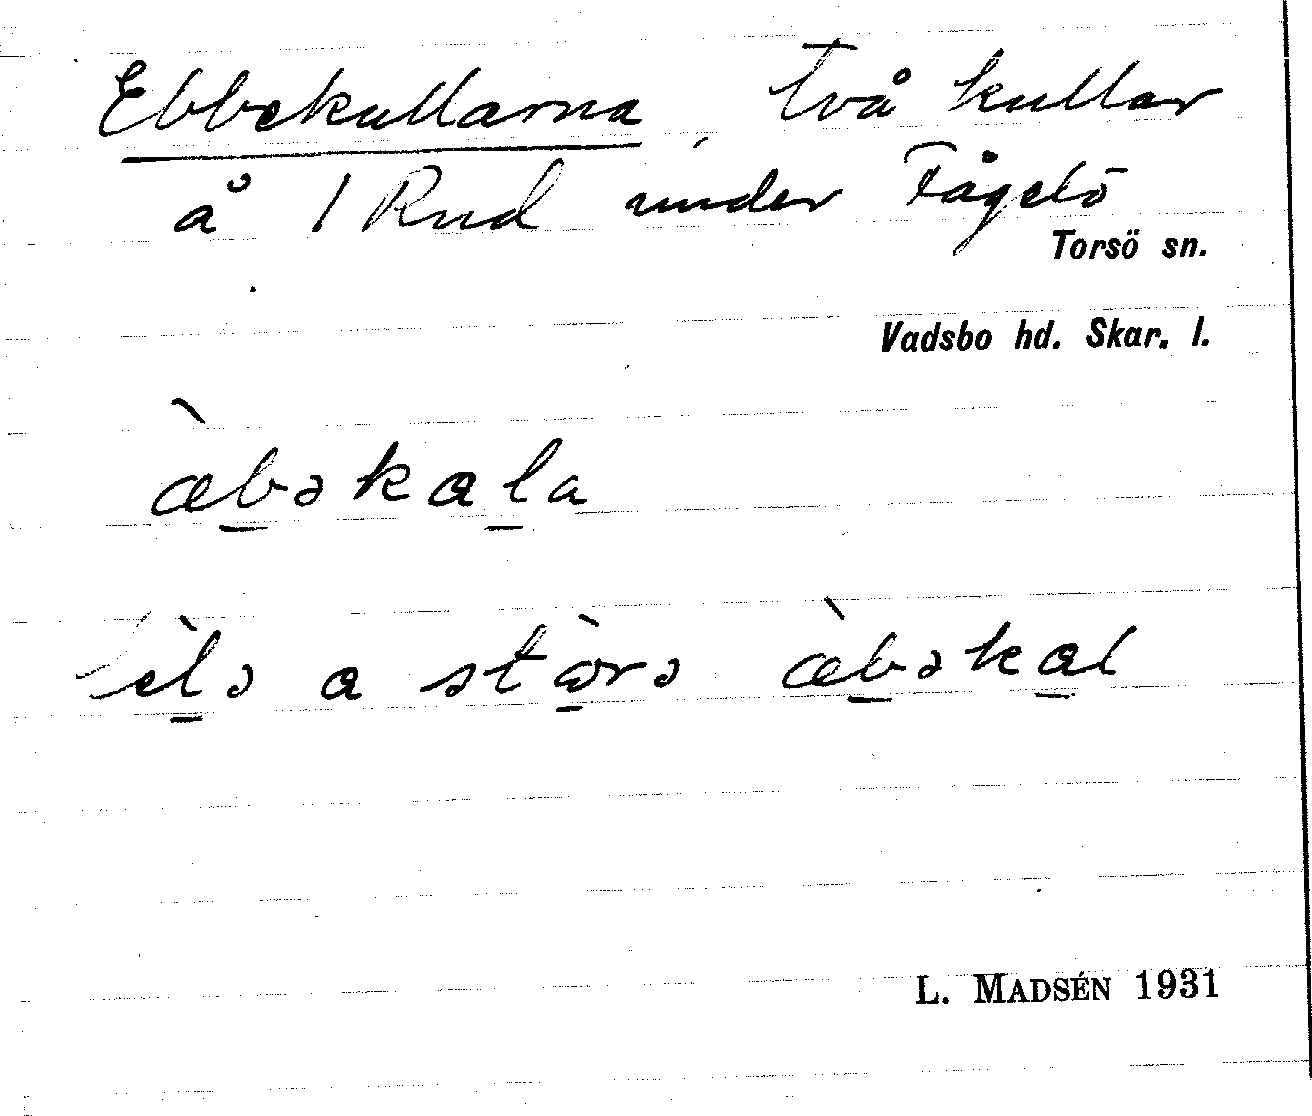 Ebbekullarna, två kullar
å 1 Rud under Fågelö
Torsö sn.
Vadsbo hd. Skar. l.
æ̀b̲əkal̲a
lèl̲ə a stɷ̲̀rə æ̀b̲əka̲l
L. MADSÉN 1931